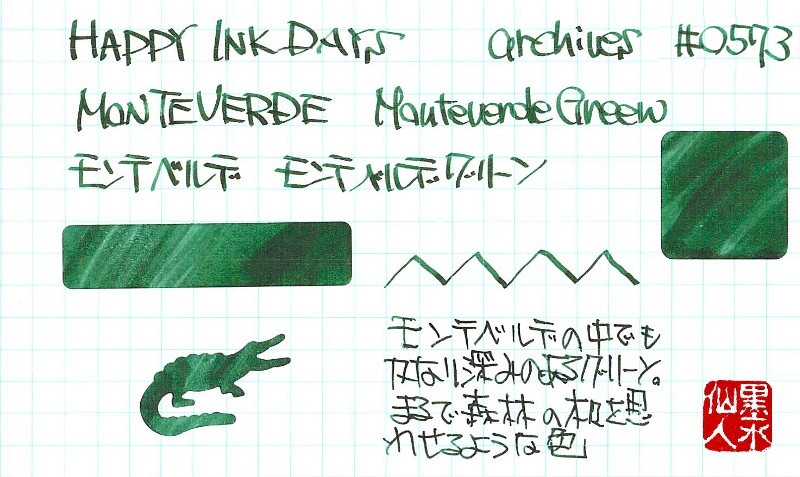 HAPPY INK DAYS archives #0573
MONTEVERDE Monteverde Green
モンテベルデ モンテベルデグリーン
モンテベルデの中でも
かなり深みのあるグリーン。
まるで森林の木々を思
わせるような色」
墨水
仙人